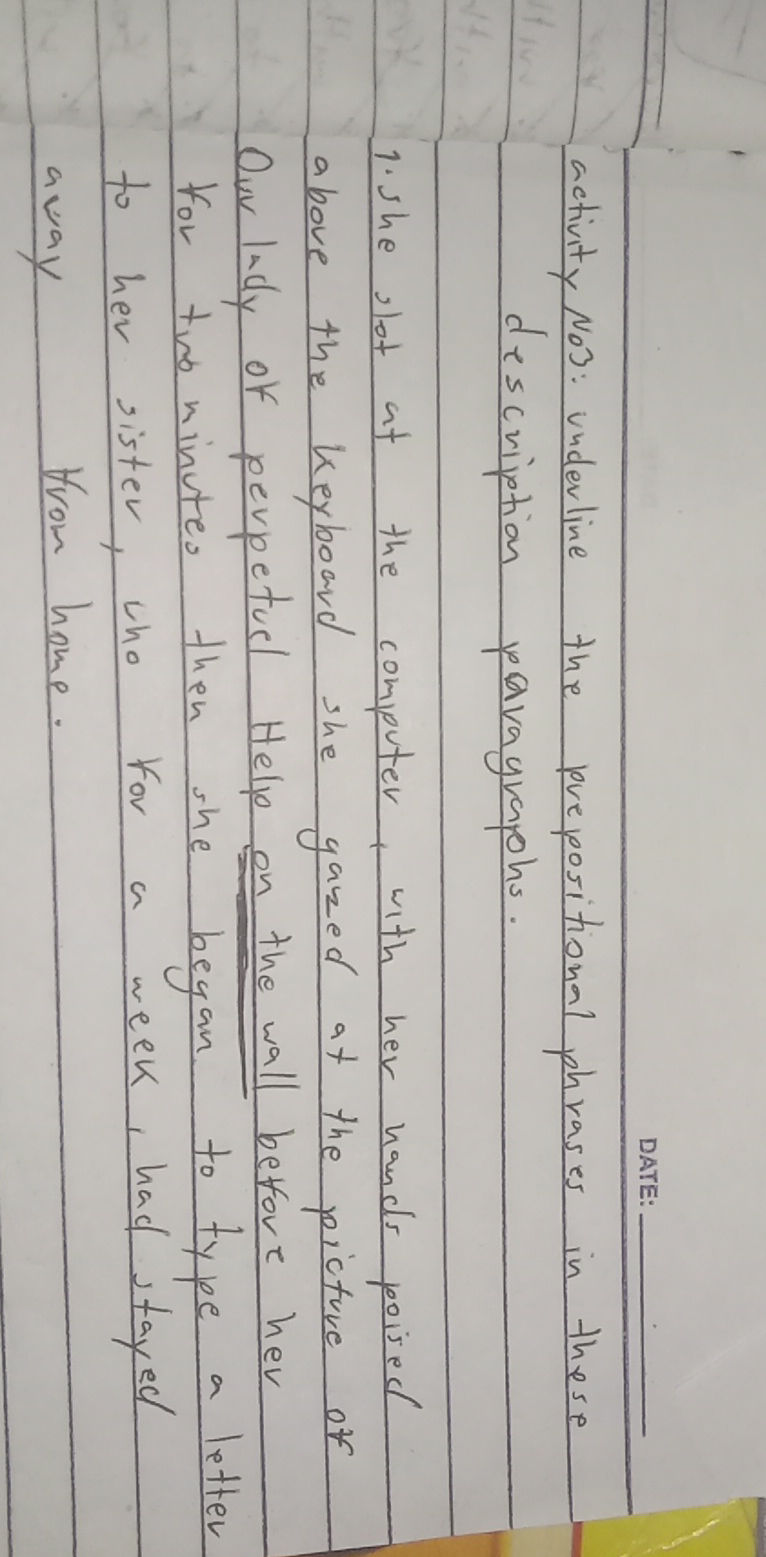 DATE:
activity No3: underline the prepositional phrases in these
description paragraphs.
1. she slot at the computer, with her hands poised
above the keyboard she gazed at the picture of
Our lady of perpetual Help on the wall before her
for two minutes then she began to type a letter
to her sister, who for a week, had stayed
away from home.